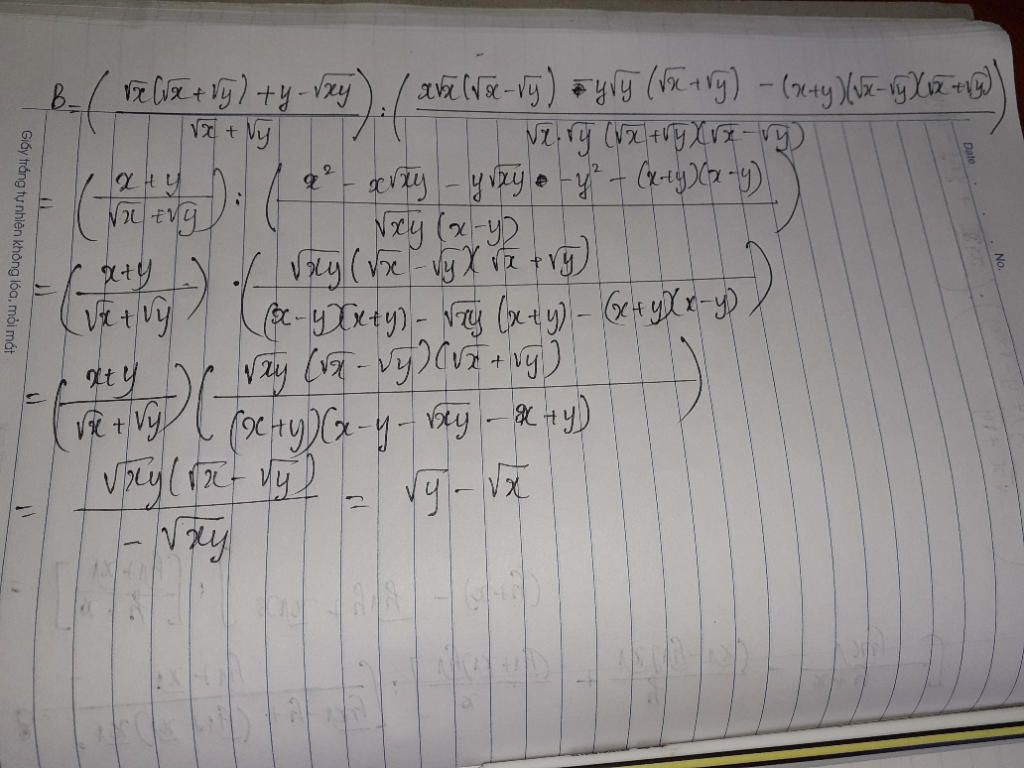 B = ( (√x(√x + √y) + y - √xy) / (√x + √y) ) : ( (x√x(√x - √y) - y√y (√x + √y) - (x+y)(√x - √y)(√x + √y)) / (√x · √y (√x + √y)(√x - √y)) )
= ( (x + y) / (√x + √y) ) : ( (x² - x√xy - y√xy - y² - (x+y)(x-y)) / (√xy (x-y)) )
= ( (x+y) / (√x + √y) ) · ( (√xy (√x - √y)(√x + √y)) / ((x-y)(x+y) - √xy (x+y) - (x+y)(x-y)) )
= ( (x+y) / (√x + √y) ) ( (√xy (√x - √y)(√x + √y)) / ((x+y)(x - y - √xy - x + y)) )
= (√xy (√x - √y)) / (- √xy) = √y - √x
Giấy trắng tự nhiên không lóa, mỏi mắt
Date
No.